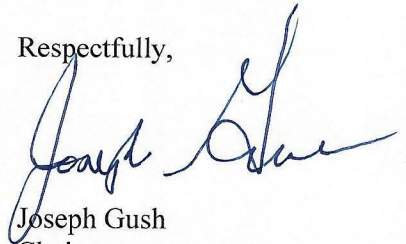 Respectfully,
Joseph Gush
Joseph Gush